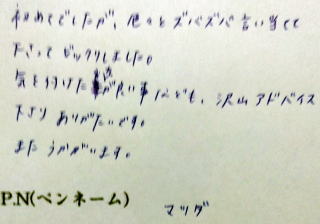 初めてでしたが、色々とズバズバ言い当てて
下さってビックリしました。
気を付けた方が良い事なども、沢山アドバイス
下さりありがたいです。
またうかがいます。
P.N(ペンネーム) マツダ